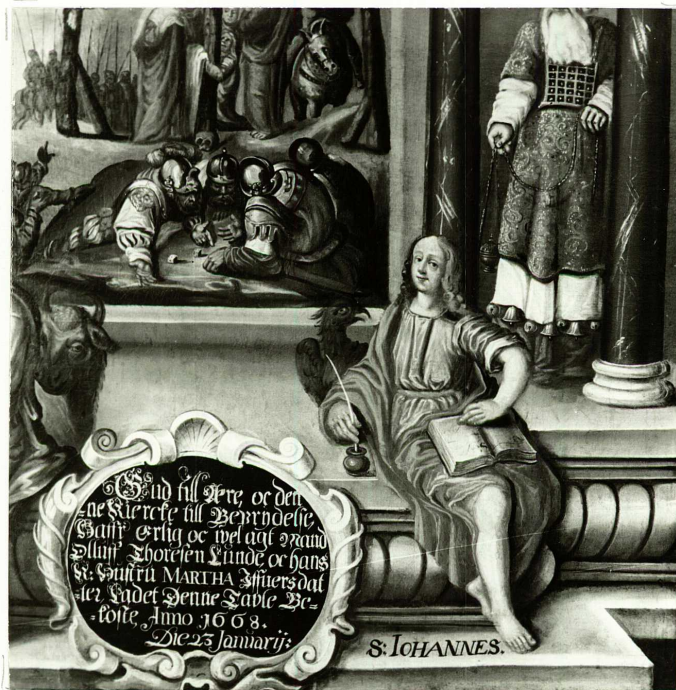 Gud till Ære, oc den
ne Kiercke till Beprydelse,
Haffr Erlig oc wel agt Mand
Olluff Thoresen Lunde oc hans
K: Hustru MARTHA Iffuersdat
ter Ladet Denne Tavle Be-
koste, Anno 1668.
Die 23 Januarij:
S: IOHANNES.